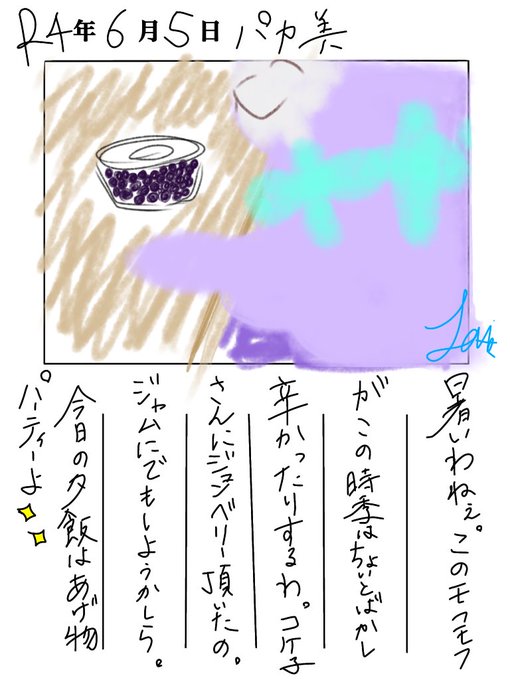 R4年6月5日 パカ美
暑いわねぇ。このモフモフ
がこの時季はちょいとばかし
辛かったりするわ。コケ子
さんにジュンベリー頂いたの。
ジャムにでもしようかしら。
今日の夕飯はあげ物
パーティーよ